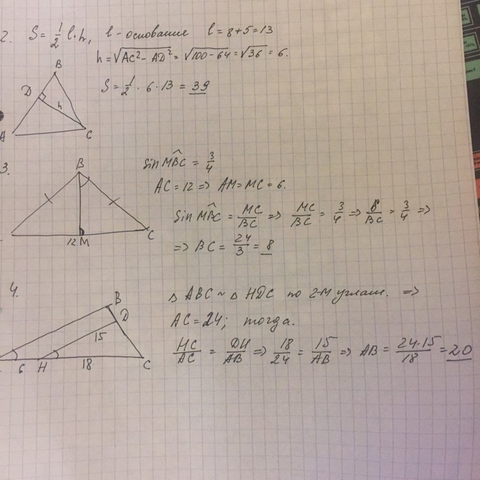 2. S = 1/2 l·h, l - основание l = 8+5 = 13
h = √(AC² - AD²) = √(100-64) = √36 = 6.
S = 1/2 · 6 · 13 = 39
B
D
h
A
C
3.
sin MBC = 3/4
AC = 12 => AM = MC = 6.
sin MBC = MC/BC => MC/BC = 3/4 => 6/BC = 3/4 =>
=> BC = 24/3 = 8
B
12 M
C
4.
△ABC ~ △HDC по 2-м углам. =>
AC = 24; тогда.
HC/AC = DH/AB => 18/24 = 15/AB => AB = 24·15/18 = 20
B
D
15
6 H 18 C